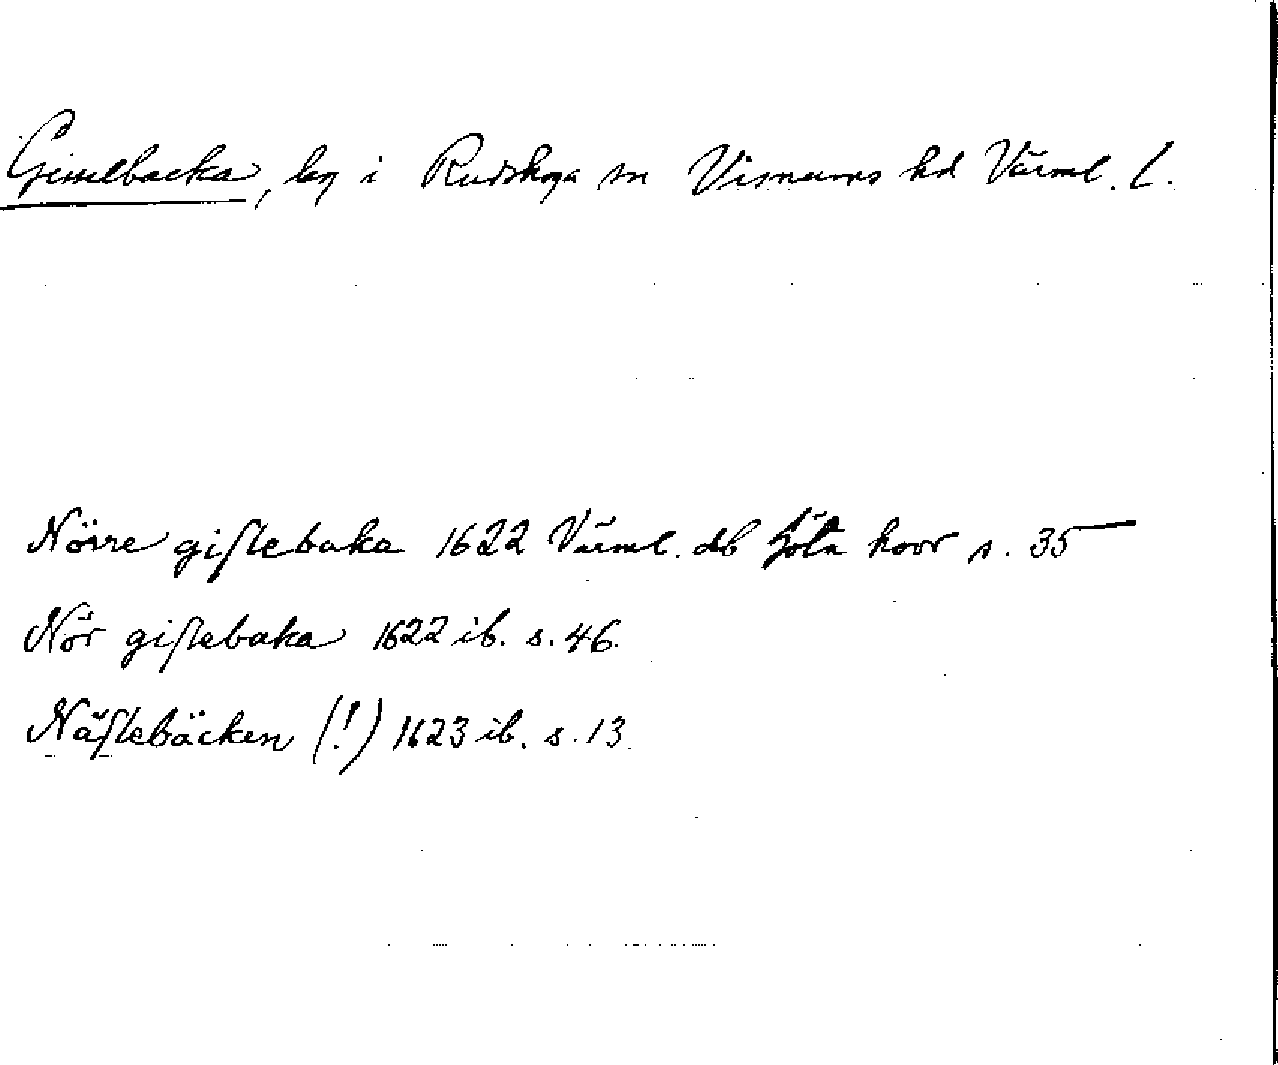 Gisselbacka, lag i Rudskoga sn Visnums hd Värml. l.
Nörre giſlebaka 1622 Värml. db Göta hovr s. 35
Nör giſlebaka 1622 ib. s. 46.
Näſlebäcken (!) 1623 ib. s. 13.